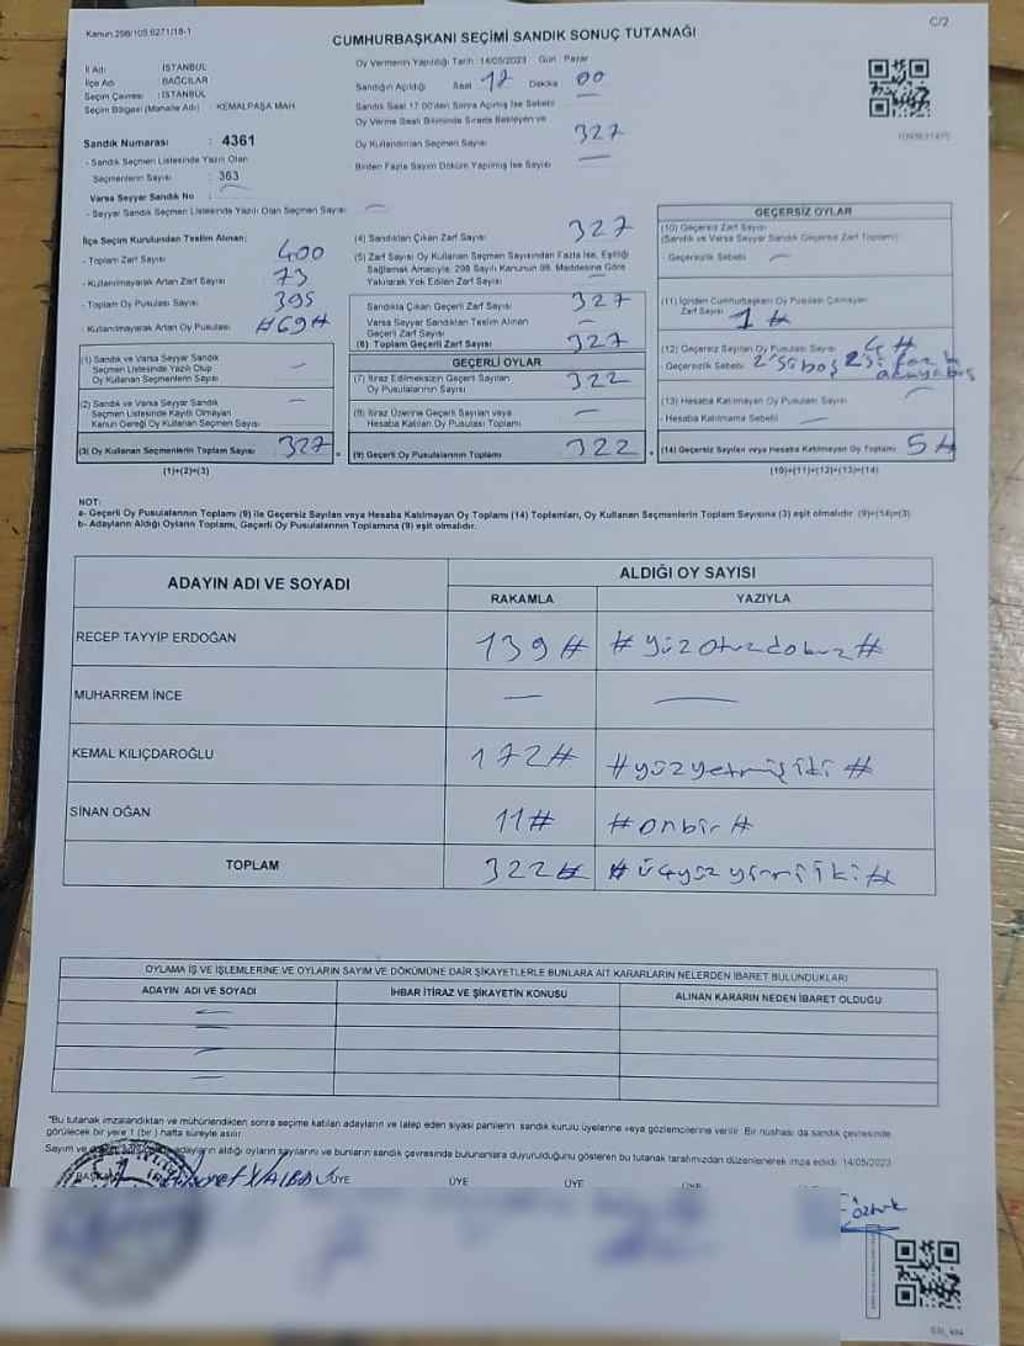 Kanun:298/105,6271/18-1
C/2
CUMHURBAŞKANI SEÇİMİ SANDIK SONUÇ TUTANAĞI
İl Adı : İSTANBUL
İlçe Adı : BAĞCILAR
Seçim Çevresi : İSTANBUL
Seçim Bölgesi (Mahalle Adı) : KEMALPAŞA MAH.
Sandık Numarası : 4361
- Sandık Seçmen Listesinde Yazılı Olan
Seçmenlerin Sayısı : 363
Varsa Seyyar Sandık No :
- Seyyar Sandık Seçmen Listesinde Yazılı Olan Seçmen Sayısı
Oy Vermenin Yapıldığı Tarih : 14/05/2023 Gün : Pazar
Sandığın Açıldığı Saat 17 Dakika 00
Sandık Saat 17.00'den Sonra Açılmış İse Sebebi
Oy Verme Saati Bitiminde Sırada Bekleyen ve
Oy Kullandırılan Seçmen Sayısı 327
Birden Fazla Sayım Döküm Yapılmış İse Sayısı
İlçe Seçim Kurulundan Teslim Alınan;
- Toplam Zarf Sayısı 400
- Kullanılmayarak Artan Zarf Sayısı 73
- Toplam Oy Pusulası Sayısı 395
- Kullanılmayarak Artan Oy Pusulası #69#
(1) Sandık ve Varsa Seyyar Sandık
Seçmen Listesinde Yazılı Olup
Oy Kullanan Seçmenlerin Sayısı
(2) Sandık ve Varsa Seyyar Sandık
Seçmen Listesinde Kayıtlı Olmayan
Kanun Gereği Oy Kullanan Seçmen Sayısı
(3) Oy Kullanan Seçmenlerin Toplam Sayısı 327
(1)+(2)=(3)
(4) Sandıktan Çıkan Zarf Sayısı 327
(5) Zarf Sayısı Oy Kullanan Seçmen Sayısından Fazla İse, Eşitliği
Sağlamak Amacıyla, 298 Sayılı Kanunun 98. Maddesine Göre
Yakılarak Yok Edilen Zarf Sayısı
Sandıkta Çıkan Geçerli Zarf Sayısı 327
Varsa Seyyar Sandıktan Teslim Alınan
Geçerli Zarf Sayısı
(6) Toplam Geçerli Zarf Sayısı 327
GEÇERLİ OYLAR
(7) İtiraz Edilmeksizin Geçerli Sayılan
Oy Pusulalarının Sayısı 322
(8) İtiraz Üzerine Geçerli Sayılan veya
Hesaba Katılan Oy Pusulası Toplamı
(9) Geçerli Oy Pusulalarının Toplamı 322
GEÇERSİZ OYLAR
(10) Geçersiz Zarf Sayısı
(Sandık ve Varsa Seyyar Sandık Geçersiz Zarf Toplamı)
- Geçersizlik Sebebi
(11) İçinden Cumhurbaşkanı Oy Pusulası Çıkmayan
Zarf Sayısı 1#
(12) Geçersiz Sayılan Oy Pusulası Sayısı 4#
- Geçersizlik Sebebi 2'si boş 2si
(13) Hesaba Katılmayan Oy Pusulası Sayısı
- Hesaba Katılmama Sebebi
(14) Geçersiz Sayılan veya Hesaba Katılmayan Oy Toplamı 5#
(10)+(11)+(12)+(13)=(14)
NOT:
a- Geçerli Oy Pusulalarının Toplamı (9) ile Geçersiz Sayılan veya Hesaba Katılmayan Oy Toplamı (14) Toplamları, Oy Kullanan Seçmenlerin Toplam Sayısına (3) eşit olmalıdır. (9)+(14)=(3)
b- Adayların Aldığı Oyların Toplamı, Geçerli Oy Pusulalarının Toplamına (9) eşit olmalıdır.
ADAYIN ADI VE SOYADI
ALDIĞI OY SAYISI
RAKAMLA YAZIYLA
RECEP TAYYİP ERDOĞAN 139# #yüzotuzdokuz#
MUHARREM İNCE
KEMAL KILIÇDAROĞLU 172# #yüzyetmişiki#
SİNAN OĞAN 11# #onbir#
TOPLAM 322# #üçyüzyirmiiki#
OYLAMA İŞ VE İŞLEMLERİNE VE OYLARIN SAYIM VE DÖKÜMÜNE DAİR ŞİKAYETLERLE BUNLARA AİT KARARLARIN NELERDEN İBARET BULUNDUKLARI
ADAYIN ADI VE SOYADI İHBAR İTİRAZ VE ŞİKAYETİN KONUSU ALINAN KARARIN NEDEN İBARET OLDUĞU
*Bu tutanak imzalandıktan ve mühürlendikten sonra seçime katılan adayların ve talep eden siyasi partilerin sandık kurulu üyelerine veya gözlemcilerine verilir. Bir nüshası da sandık çevresinde
görülecek bir yere 1 (bir) hafta süreyle asılır.
Sayım ve adayların aldığı oyların sayılarını ve bunların sandık çevresinde bulunanlara duyurulduğunu gösteren bu tutanak tarafımızdan düzenlenerek imza edildi. 14/05/2023
BAŞKAN ÜYE ÜYE ÜYE
Öztürk